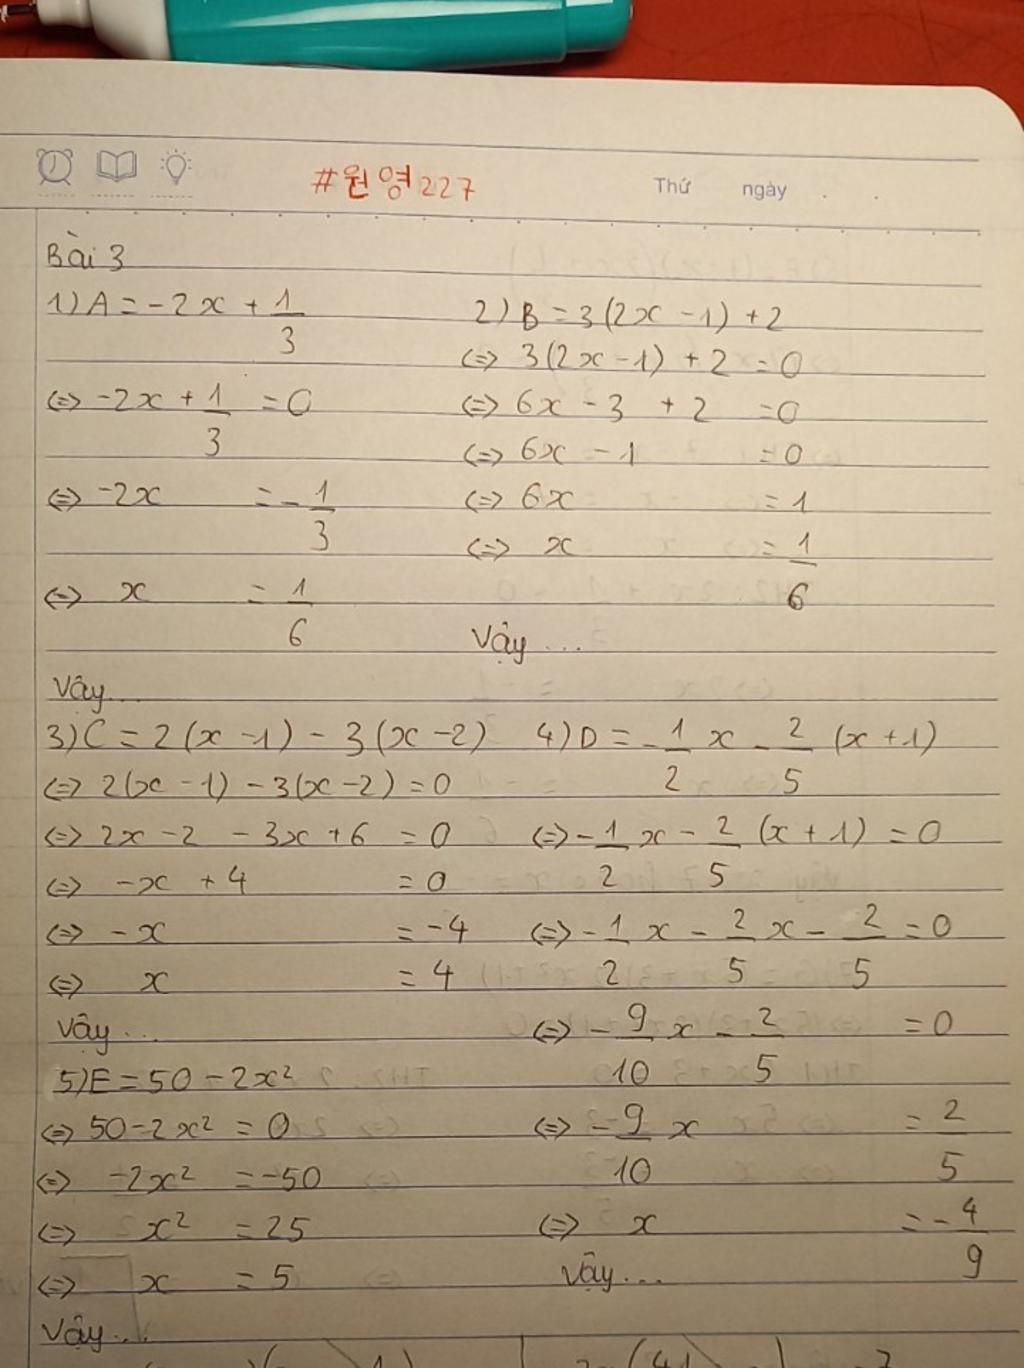 #원영227
Thứ ngày
Bài 3
1) A = -2x + 1/3
<=> -2x + 1/3 = 0
<=> -2x = -1/3
<=> x = 1/6
Vậy...
2) B = 3(2x - 1) + 2
<=> 3(2x - 1) + 2 = 0
<=> 6x - 3 + 2 = 0
<=> 6x - 1 = 0
<=> 6x = 1
<=> x = 1/6
Vậy ...
3) C = 2(x - 1) - 3(x - 2)
<=> 2(x - 1) - 3(x - 2) = 0
<=> 2x - 2 - 3x + 6 = 0
<=> -x + 4 = 0
<=> -x = -4
<=> x = 4
Vậy ...
4) D = -1/2 x - 2/5 (x + 1)
<=> -1/2 x - 2/5 (x + 1) = 0
<=> -1/2 x - 2/5 x - 2/5 = 0
<=> -9/10 x - 2/5 = 0
<=> -9/10 x = 2/5
<=> x = -4/9
Vậy ...
5) E = 50 - 2x²
<=> 50 - 2x² = 0
<=> -2x² = -50
<=> x² = 25
<=> x = 5
Vậy ...